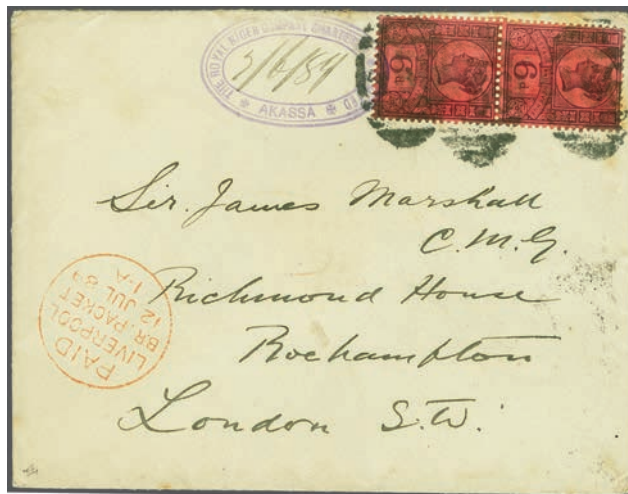 THE ROYAL NIGER COMPANY CHARTERED
2/6/89
AKASSA
6d
6d
Sir. James Marshall
C.M.G.
Richmond House
Roehampton
London S.W.
PAID
LIVERPOOL
BR. PACKET
12 JUL 89
1-A